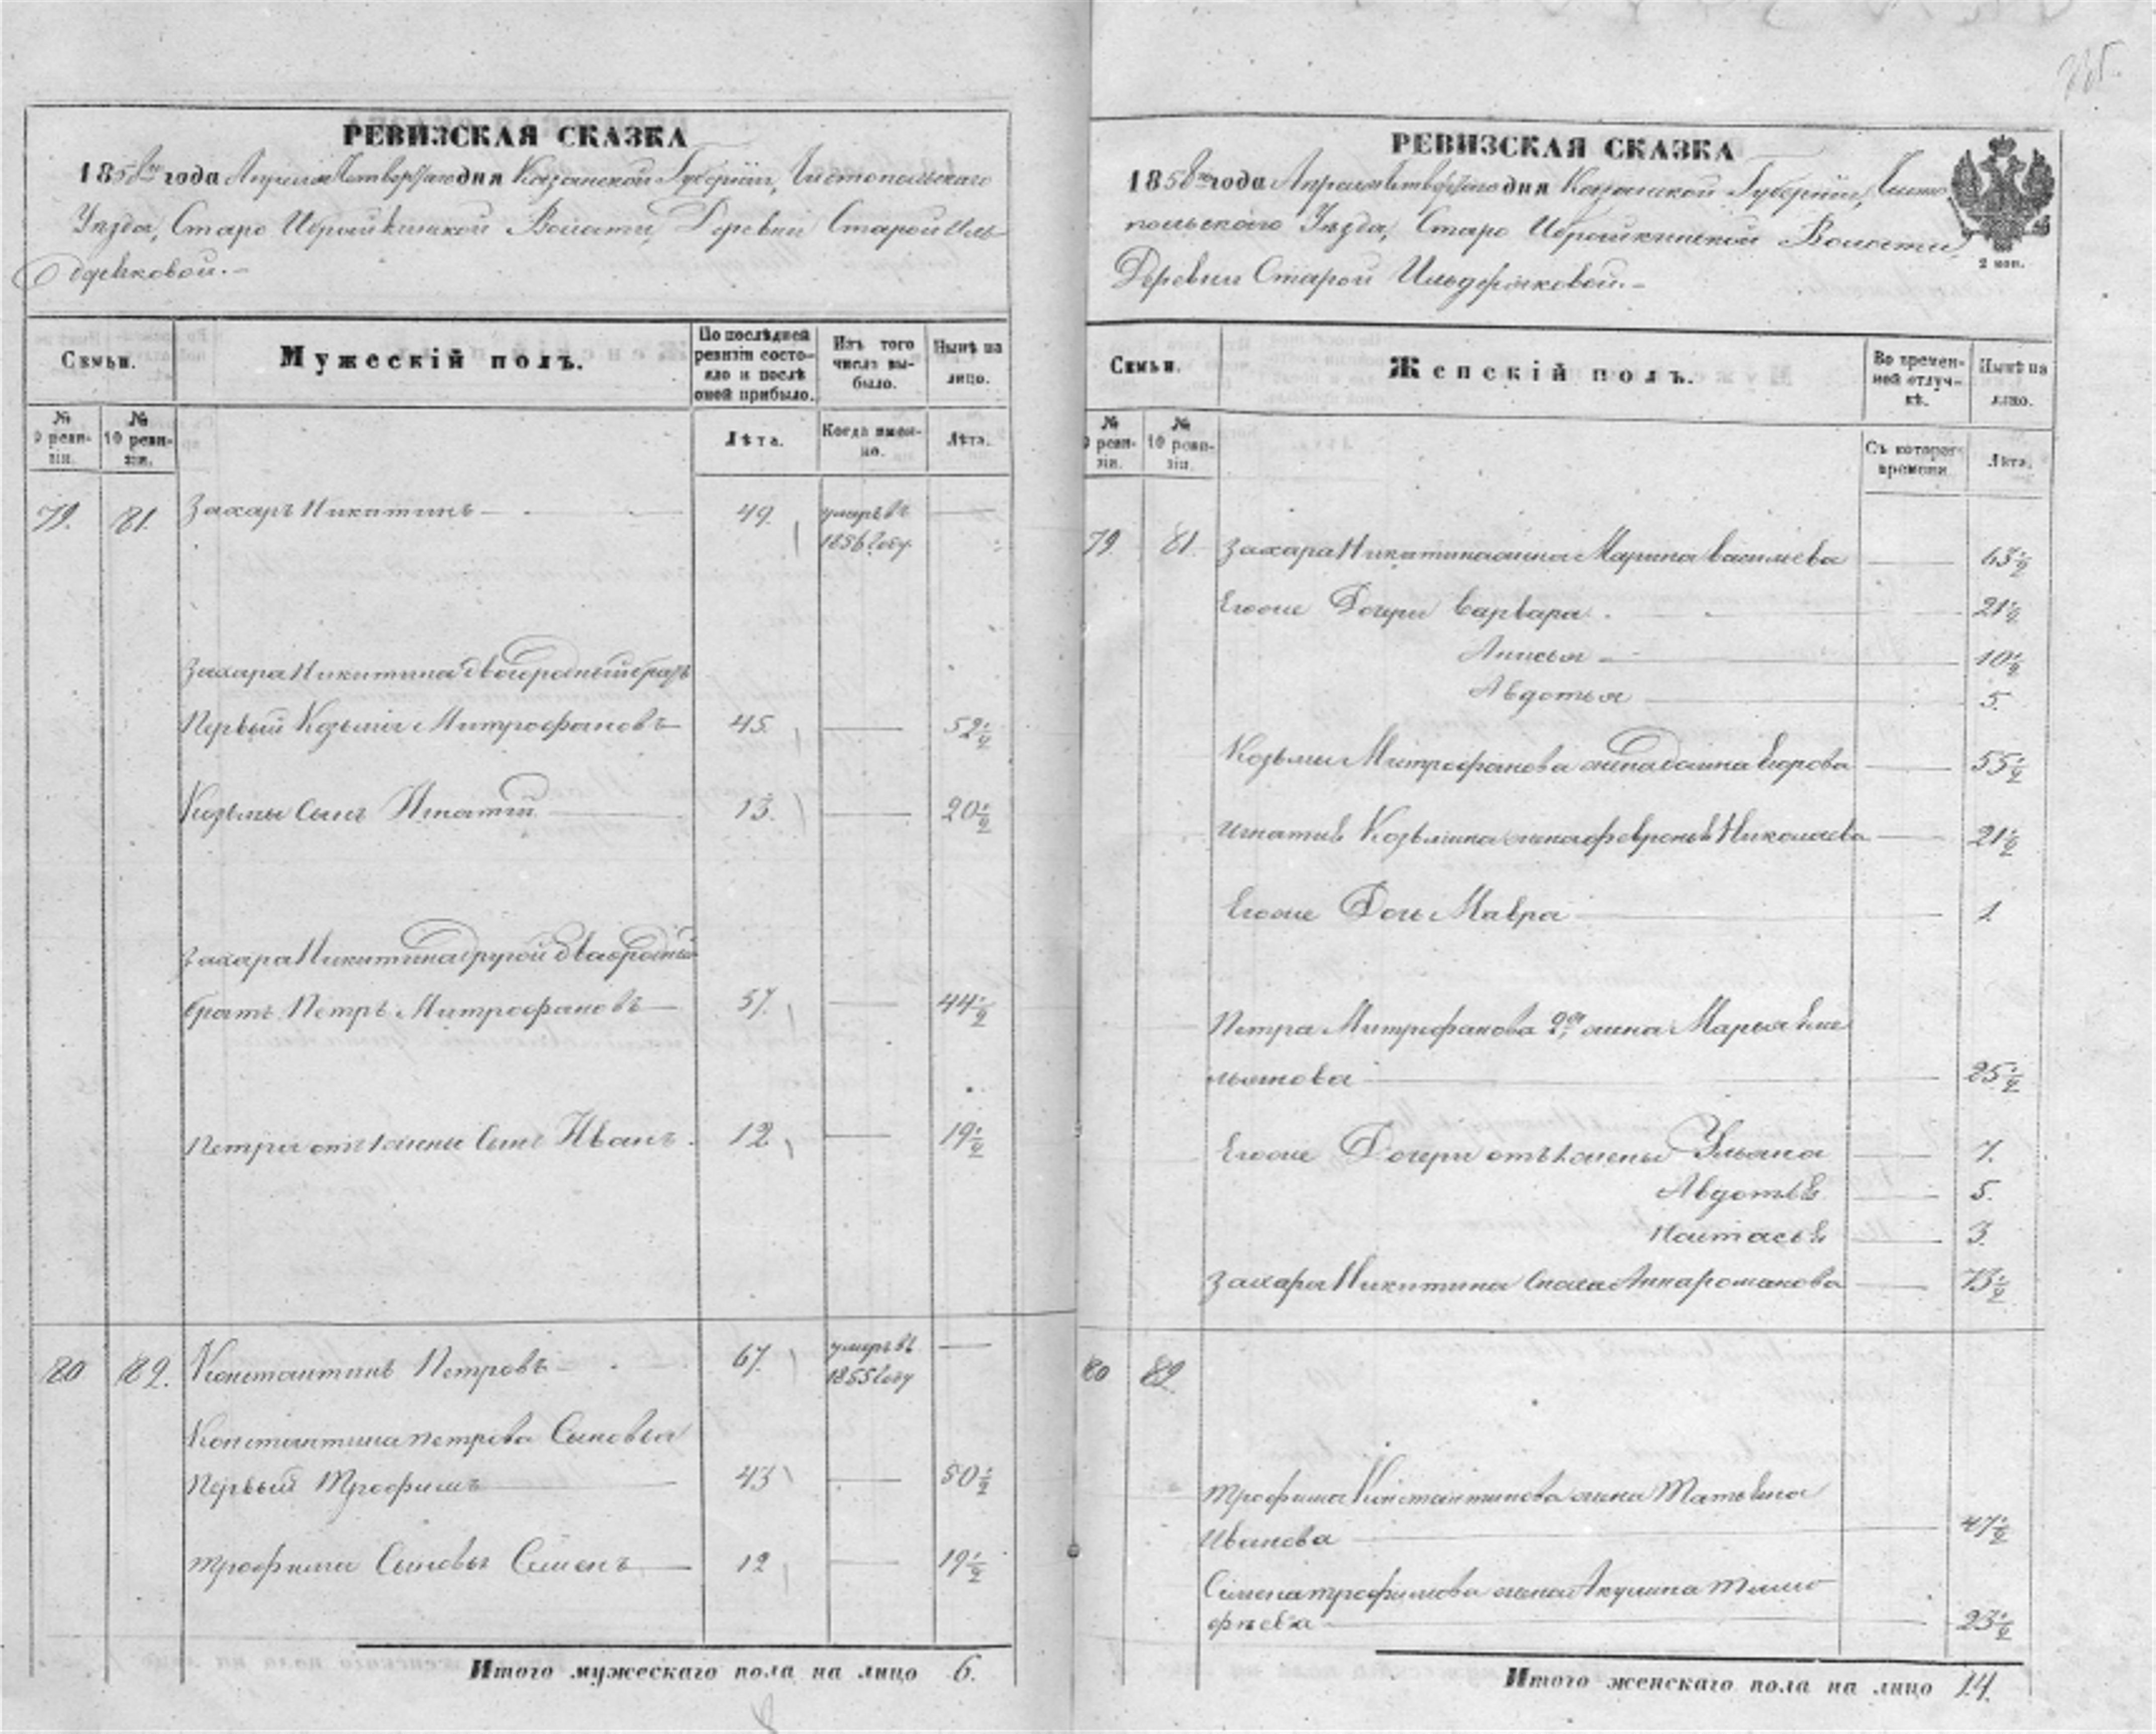 РЕВИЗСКАЯ СКАЗКА
1858го года Апреля Четвертаго дня Казанской Губернии, Чистопольскаго
Уезда, Старо Ибрайкинской Волости, Деревни Старой Иль-
деряковой.-
Семьи.
Мужескій полъ.
По послѣдней
ревизіи состо-
яло и послѣ
оной прибыло.
Изъ того
числа вы-
было.
Нынѣ на
лицо.
№
9 реви-
зіи.
№
10 реви-
зіи.
Лѣта.
Когда имен-
но.
Лѣта.
79. 81. Захаръ Никитинъ 49. умеръ въ
1856 году.
Захара Никитина двоюродный братъ
Первый Козьма Митрофановъ 45. 52 1/2
Козьмы Сынъ Игнатий 13. 20 1/2
Захара Никитина другой двоюродный
братъ Петръ Митрофановъ 37. 44 1/2
Петра отъ 1 жены Сынъ Иванъ 12 19 1/2
80 82. Константинъ Петровъ 67. умеръ въ
1855 году
Константина петрова Сыновья
Первый Трофимъ 43 50 1/2
Трофима Сыновья Семенъ 12 19 1/2
Итого мужескаго пола на лицо 6.
РЕВИЗСКАЯ СКАЗКА
1858го года Апреля Четвертаго дня Казанской Губернии, Чисто
польского Уезда, Старо Ибрайкинской Волости,
Деревни Старой Ильдеряковой.-
2 коп.
Семьи.
Женскій полъ.
Во времен-
ной отлуч-
кѣ.
Нынѣ на
лицо.
№
9 реви-
зіи.
№
10 реви-
зіи.
Съ котораго
времени
Лѣта.
79 81. Захара Никитина жена Марина Василиева 43 1/2
Егоже Дочери Варвара 21 1/2
Анисья 10 1/2
Авдотья 5.
Козьмы Митрофанова жена Егорова 55 1/2
Игнатия Козьмина жена Февронья Николаева 21 1/2
Егоже Дочь Мавра 1
Петра Митрофанова 2я жена Марья Еме
льянова 25 1/2
Егоже Дочери отъ 1 жены Ульяна 7.
Авдотья 5.
Настасья 3.
Захара Никитина Сноха Анна Романова 73 1/2
80 82
Трофима Константинова жена Татьяна
Иванова 47 1/2
Семена трофимова жена Акулина тимо
фѣева 23 1/2
Итого женскаго пола на лицо 14.